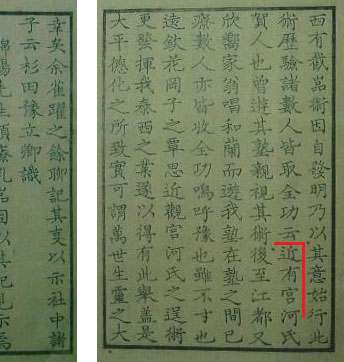 西有截嵓術因自發明乃以其意始行此
術歷驗諸數人皆取全功云近有宮河氏
賀人也曾遊其塾親視其術後至江都又
欣嚮家翁唱和蘭而遊我塾在塾之間已
療數人亦皆收全功嗚呼豫也雖不才也
遠欽花岡子之覃思近觀宮河氏之逞術
更發揮我泰西之業遂以得有此舉蓋是
大平德化之所致實可謂萬世生靈之大
幸矣余雀躍之餘聊記其叓以示社中諸
子云杉田豫立卿識